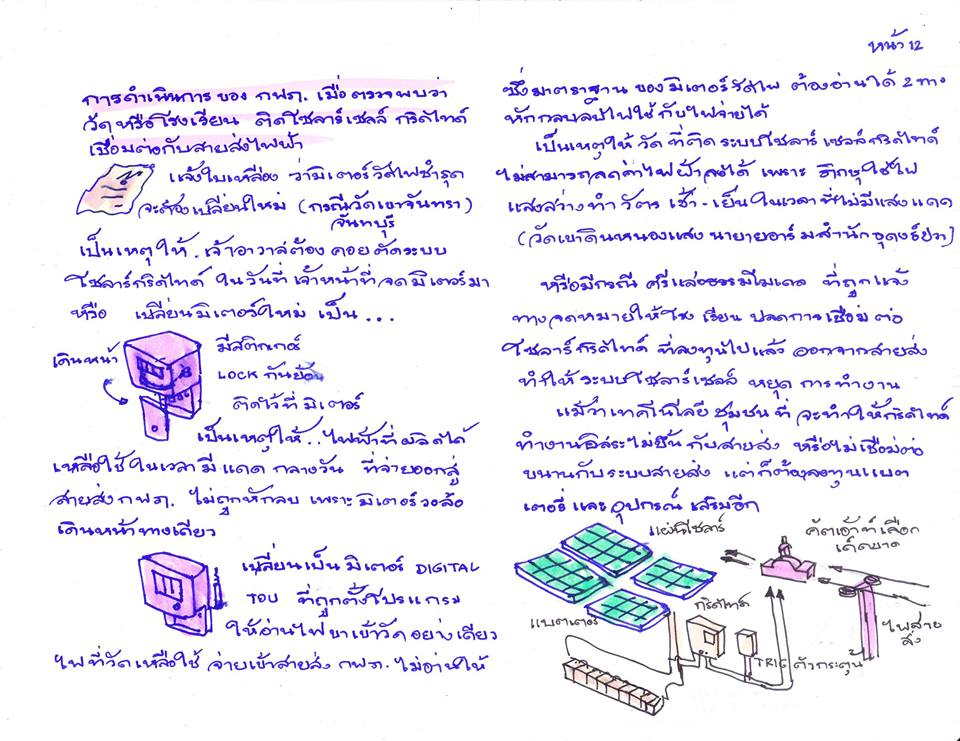 หน้า 12
การดำเนินการ ของ กฟภ. เมื่อ ตรวจพบว่า
วัดหรือโรงเรียน ติดโซลาร์เซลล์ กริดไทด์
เชื่อมต่อกับสายส่งไฟฟ้า
แจ้งใบเหลือง ว่ามิเตอร์วัดไฟชำรุด
จะต้องเปลี่ยนใหม่ (กรณีวัดเขาจันทรา)
จันทบุรี
เป็นเหตุให้ เจ้าอาวาสต้อง คอยตัดระบบ
โซลาร์กริดไทด์ ในวันที่ เจ้าหน้าที่จดมิเตอร์มา
หรือ เปลี่ยนมิเตอร์ใหม่ เป็น ...
เดินหน้า
มีสติกเกอร์
LOCK กันย้อน
ติดไว้ที่มิเตอร์
เป็นเหตุให้..ไฟฟ้าที่ผลิตได้
เหลือใช้ ในเวลา มี แดด กลางวัน ที่จ่ายออกสู่
สายส่ง กฟภ. ไม่ถูกหักลบ เพราะมิเตอร์วงล้อ
เดินหน้าทางเดียว
เปลี่ยนเป็น มิเตอร์ DIGITAL
TOU ที่ถูกตั้งโปรแกรม
ให้อ่านไฟ ขาเข้าวัด อย่างเดียว
ไฟที่วัดเหลือใช้ จ่ายเข้าสายส่ง กฟภ. ไม่อ่านให้
ซึ่งมาตราฐาน ของมิเตอร์วัดไฟ ต้องอ่านได้ 2 ทาง
หักกลบลบไฟใช้ กับไฟจ่ายได้
เป็นเหตุให้ วัด ที่ติดระบบโซลาร์เซลล์กริดไทด์
ไม่สามารถลดค่าไฟฟ้าลงได้ เพราะ ภิกษุใช้ไฟ
แสงสว่างทำวัตร เช้า - เย็นในเวลา ที่ไม่มีแสงแดด
(วัดเขาดินหนองแสง นายายอาม สำนักธุดงธ์ปวา)
หรือมีกรณี ศรีแสงธรรมโมเดล ที่ถูกแจ้ง
ทางจดหมายให้โรงเรียน ปลดการเชื่อมต่อ
โซลาร์กริดไทด์ ที่ลงทุนไปแล้ว ออกจากสายส่ง
ทำให้ระบบโซลาร์เซลล์ หยุดการทำงาน
แม้ว่าเทคโนโลยีชุมชน ที่จะทำให้กริดไทด์
ทำงานอิสระไม่ขึ้นกับสายส่ง หรือไม่เชื่อมต่อ
ขนานกับระบบสายส่ง แต่ก็ต้องลงทุนแบต
เตอรี่ และอุปกรณ์ เสริมอีก
แผ่นโซลาร์
คัตเอ้าท์เลือก
เด็ดขาด
แบตเตอรี่
กริดไทด์
ไฟสาย
ส่ง
TRIG ตัวกระตุ้น